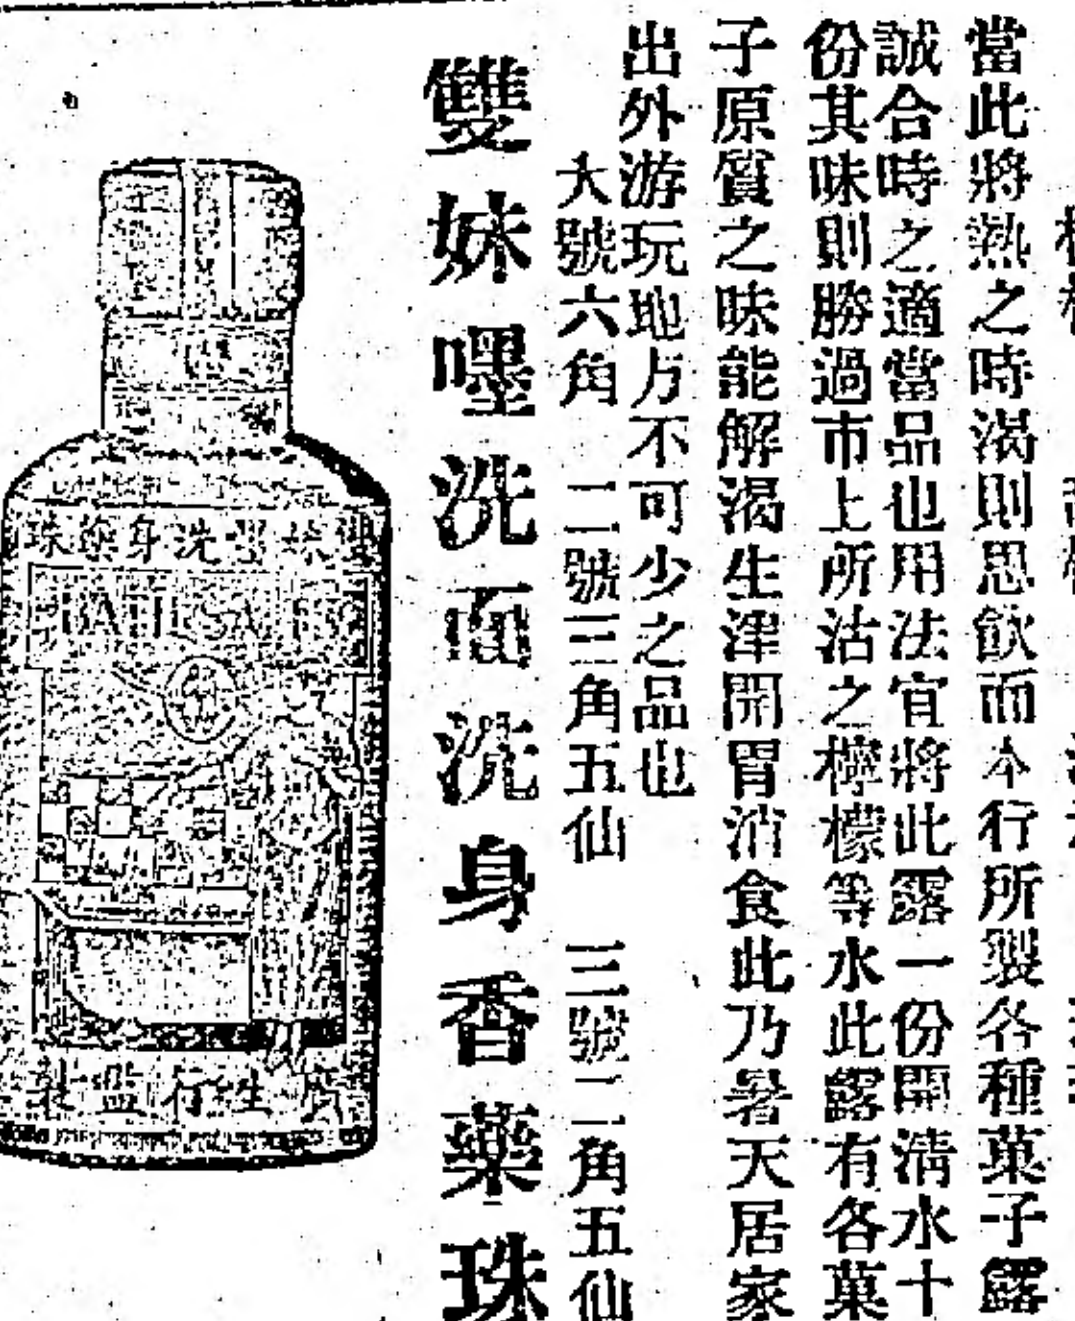 當此將熱之時渴則思飲而本行所製各種菓子露
誠合時之適當品也用法宜將此露一份開清水十
份其味則勝過市上所沽之檸檬等水此露有各菓
子原質之味能解渴生津開胃消食此乃暑天居家
出外游玩地方不可少之品也
大號六角 二號三角五仙 三號二角五仙
雙妹嘜洗面洗身香藥珠
洗身
BATH
行